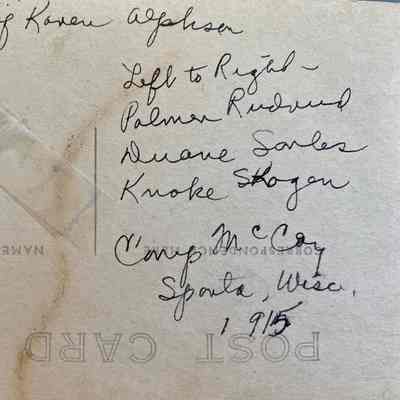 of Karen Alphson
Left to Right-
Palmer Rudrud
Duane Sorles
Knoke Skogen
Camp McCoy
CORRESPONDENCE HERE
NAME
Sparta, Wisc.
1915
POST CARD